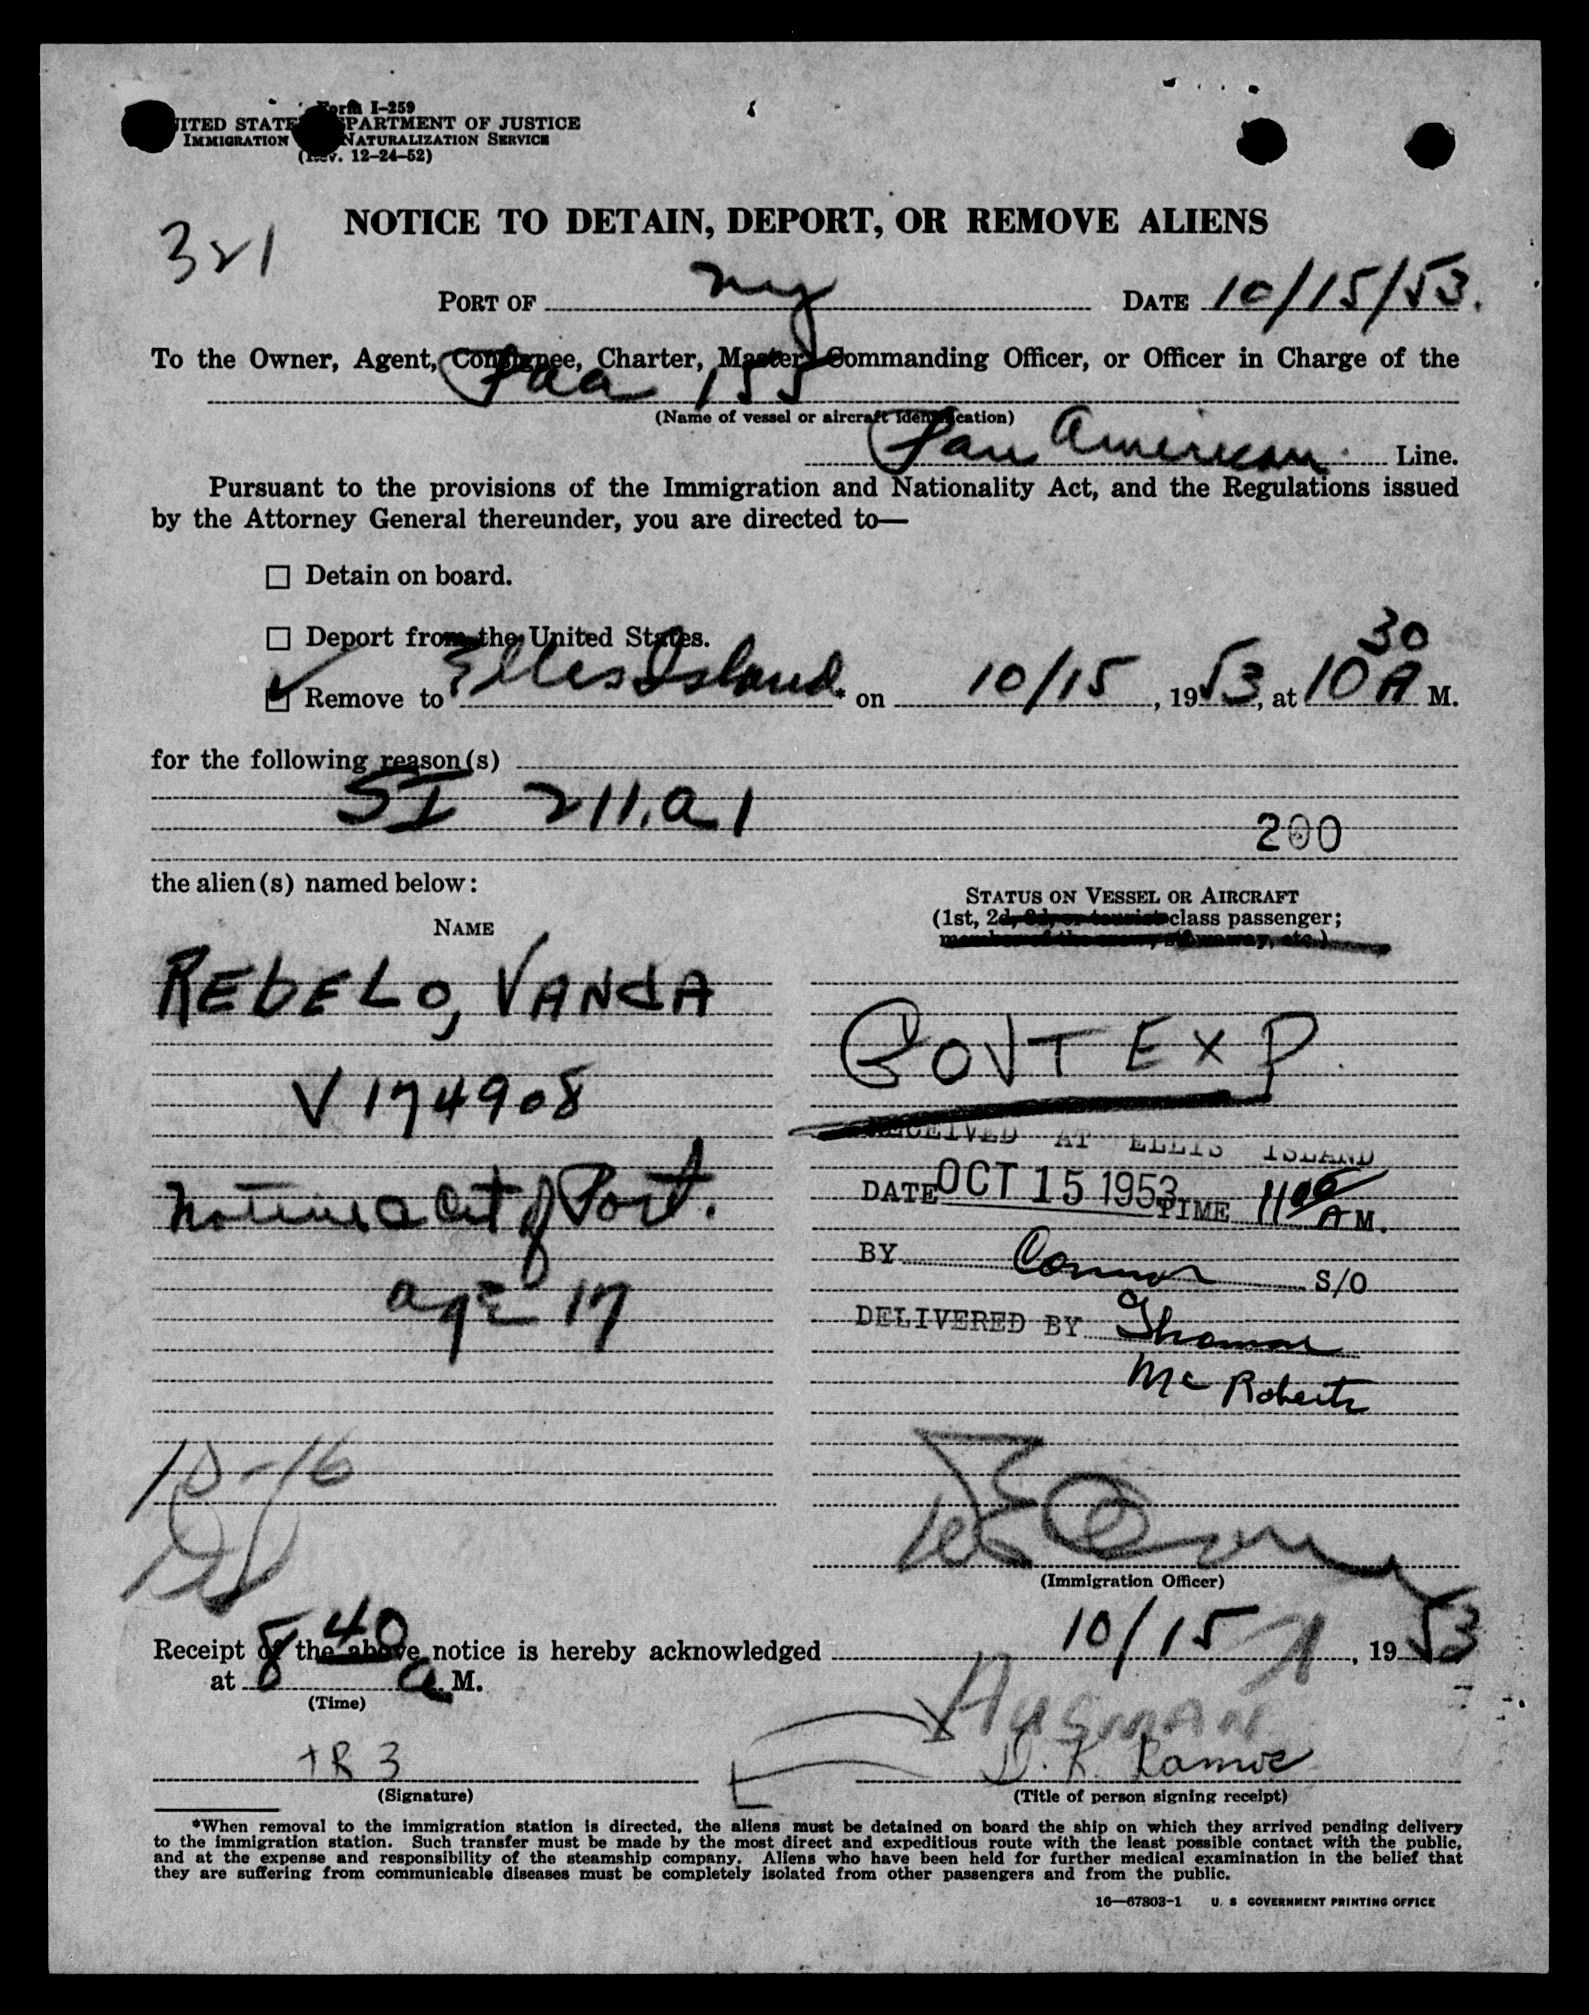 Form I-259
UNITED STATES DEPARTMENT OF JUSTICE
IMMIGRATION NATURALIZATION SERVICE
(Rev. 12-24-52)
NOTICE TO DETAIN, DEPORT, OR REMOVE ALIENS
321
PORT OF ny DATE 10/15/53.
To the Owner, Agent, Consignee, Charter, Master, Commanding Officer, or Officer in Charge of the
Paa 155
(Name of vessel or aircraft identification)
Pan American Line.
Pursuant to the provisions of the Immigration and Nationality Act, and the Regulations issued
by the Attorney General thereunder, you are directed to—
☐ Detain on board.
☐ Deport from the United States.
☑ Remove to Ellis Island* on 10/15, 1953, at 10 30 A M.
for the following reason(s)
SI 211.a1
200
the alien(s) named below:
NAME
STATUS ON VESSEL OR AIRCRAFT
(1st, 2d, 3d, or tourist class passenger;
member of the crew, stowaway, etc.)
REbELO, VANdA
GOVT EXP.
V 174908
RECEIVED AT ELLIS ISLAND
DATE OCT 15 1953 TIME 11 00 A M.
native & cit of Port.
BY Connor S/O
age 17
DELIVERED BY Thomas
Mc Roberts
10-16
(Immigration Officer)
Receipt of the above notice is hereby acknowledged 10/15, 1953
at 8 40 a M.
(Time)
HUSMAN
TR 3
D. K. Ramos
(Signature)
(Title of person signing receipt)
*When removal to the immigration station is directed, the aliens must be detained on board the ship on which they arrived pending delivery
to the immigration station. Such transfer must be made by the most direct and expeditious route with the least possible contact with the public,
and at the expense and responsibility of the steamship company. Aliens who have been held for further medical examination in the belief that
they are suffering from communicable diseases must be completely isolated from other passengers and from the public.
16—67803-1 U. S GOVERNMENT PRINTING OFFICE